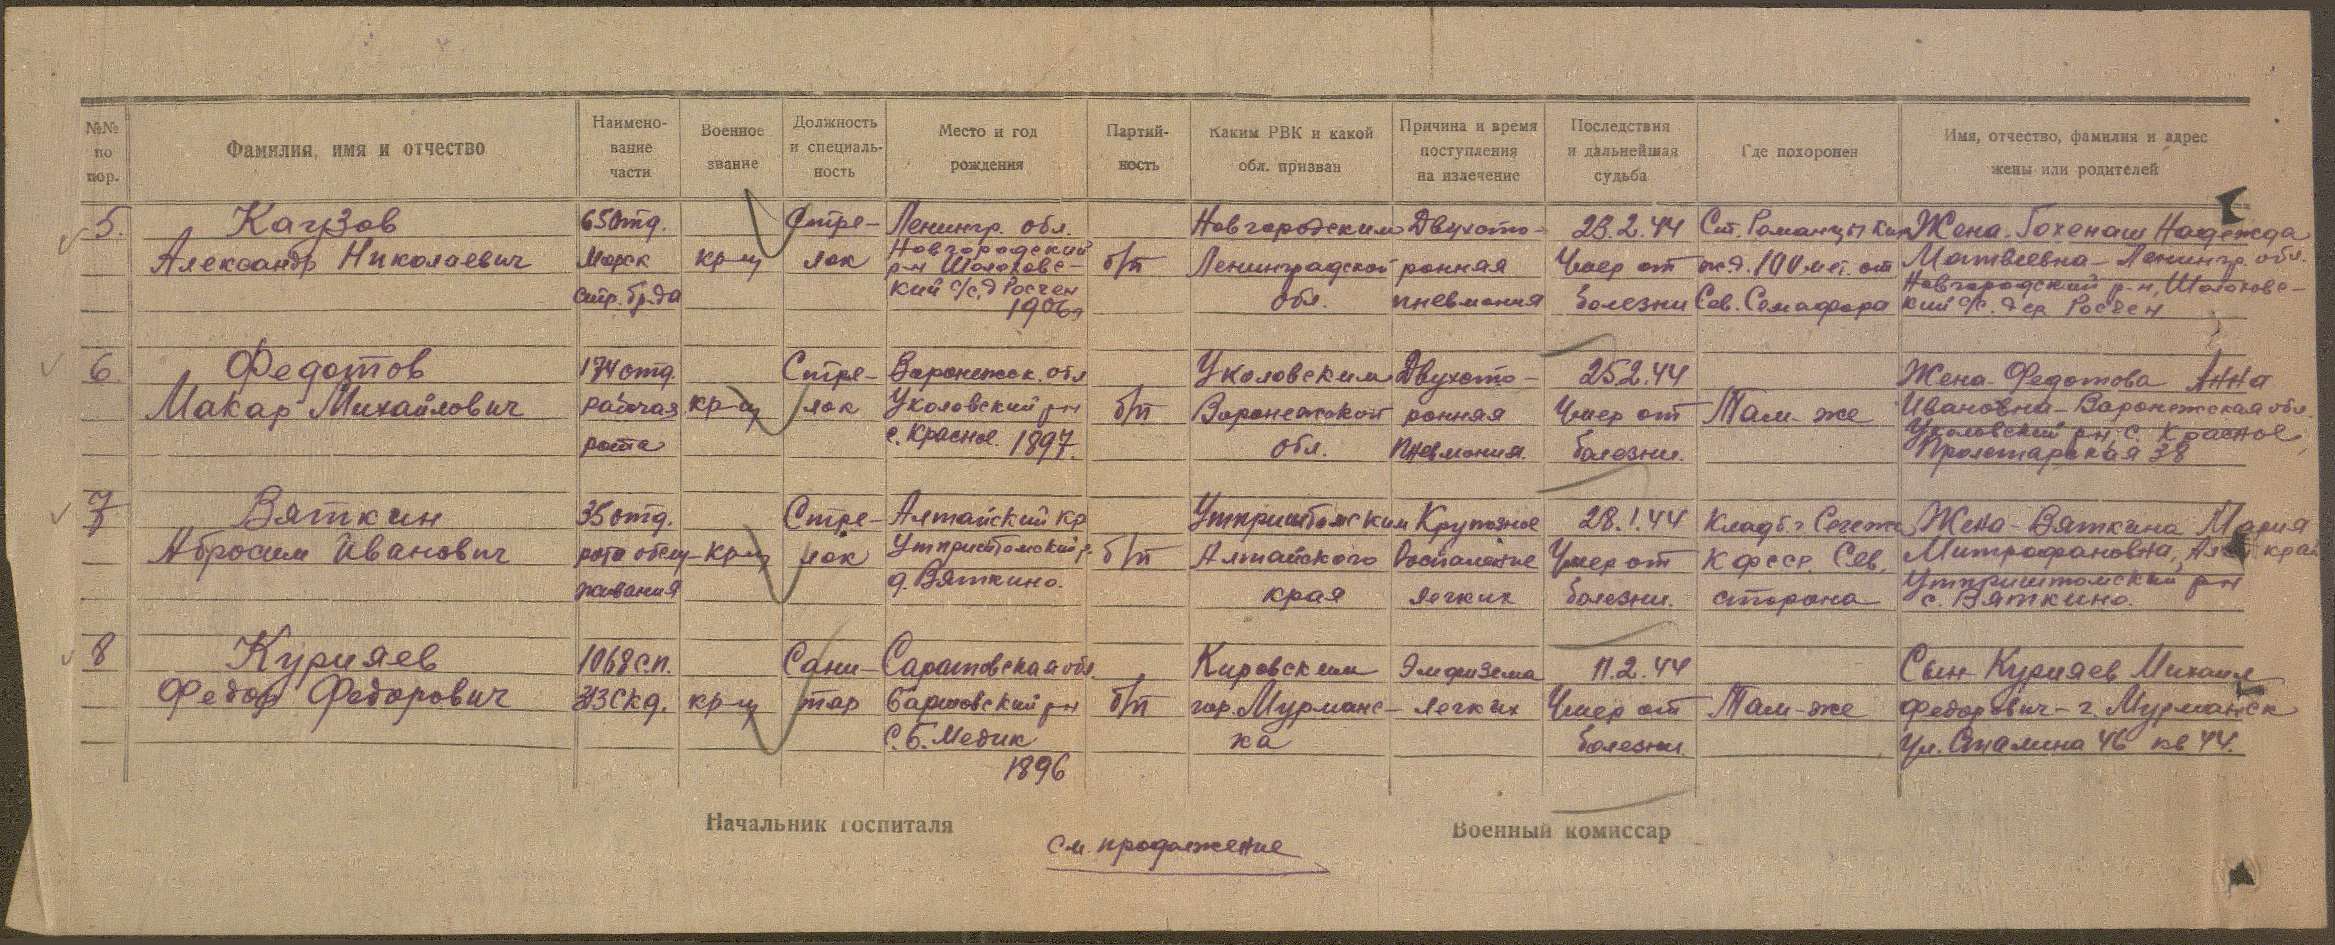 №№ по пор.
Фамилия, имя и отчество
Наимено-
вание
части
Военное
звание
Должность
и специаль-
ность
Место и год
рождения
Партий-
ность
Каким РВК и какой
обл. призван
Причина и время
поступления
на излечение
Последствия
и дальнейшая
судьба
Где похоронен
Имя, отчество, фамилия и адрес
жены или родителей
5.
Каузов
Александр Николаевич
65 отд.
Морск
стр. бр-да
кр-ц
Стре-
лок
Ленингр. обл.
Новгородский
р-н
кий с/с, д Росчен
1906
б/п
Новгородским
Ленинградской
обл.
Двухсто-
ронная
пневмония
23.2.44
Умер от
болезни
Ст.
ж.д. 100 мет. от
Сев. Семафора
Жена Надежда
Матвеевна - Ленингр. обл.
Новгородский р-н,
кий с/с. дер Росчен
6
Федотов
Макар Михайлович
174 отд
рабочая
рота
кр-ц
Стре-
лок
Воронежск. обл
Уколовский рн
с. Красное 1897.
б/п
Уколовским
Воронежской
обл.
Двухсто-
ронная
Пневмония.
25.2.44
Умер от
болезни.
Там-же
Жена Федотова Анна
Ивановна - Воронежская обл.
Уколовский рн, с. Красное
Пролетарская 38
7
Вяткин
Абросим Иванович
35 отд.
рота обслу-
живания
кр-ц
Стре-
лок
Алтайский кр
д. Вяткино.
б/п
Алтайского
края
Крупозное
Воспаление
легких
28.1.44
Умер от
болезни.
Кладб. г Сегежа
К фсср. Сев.
сторона
Жена - Вяткина Мария
Митрофановна, край
с. Вяткино.
8
Курияев
Федор Федорович
1068 сп.
313 скд.
кр-ц
Сани-
тар
Саратовская обл.
рн
с. Б. Медик
1896
б/п
Кировским
гор. Мурманс-
ка
Эмфизема
легких
11.2.44
Умер от
болезни
Там-же
Сын Курияев Михаил
Федорович - г. Мурманск
ул. Сталина 46 кв 44.
Начальник госпиталя
Военный комиссар
см. продолжение